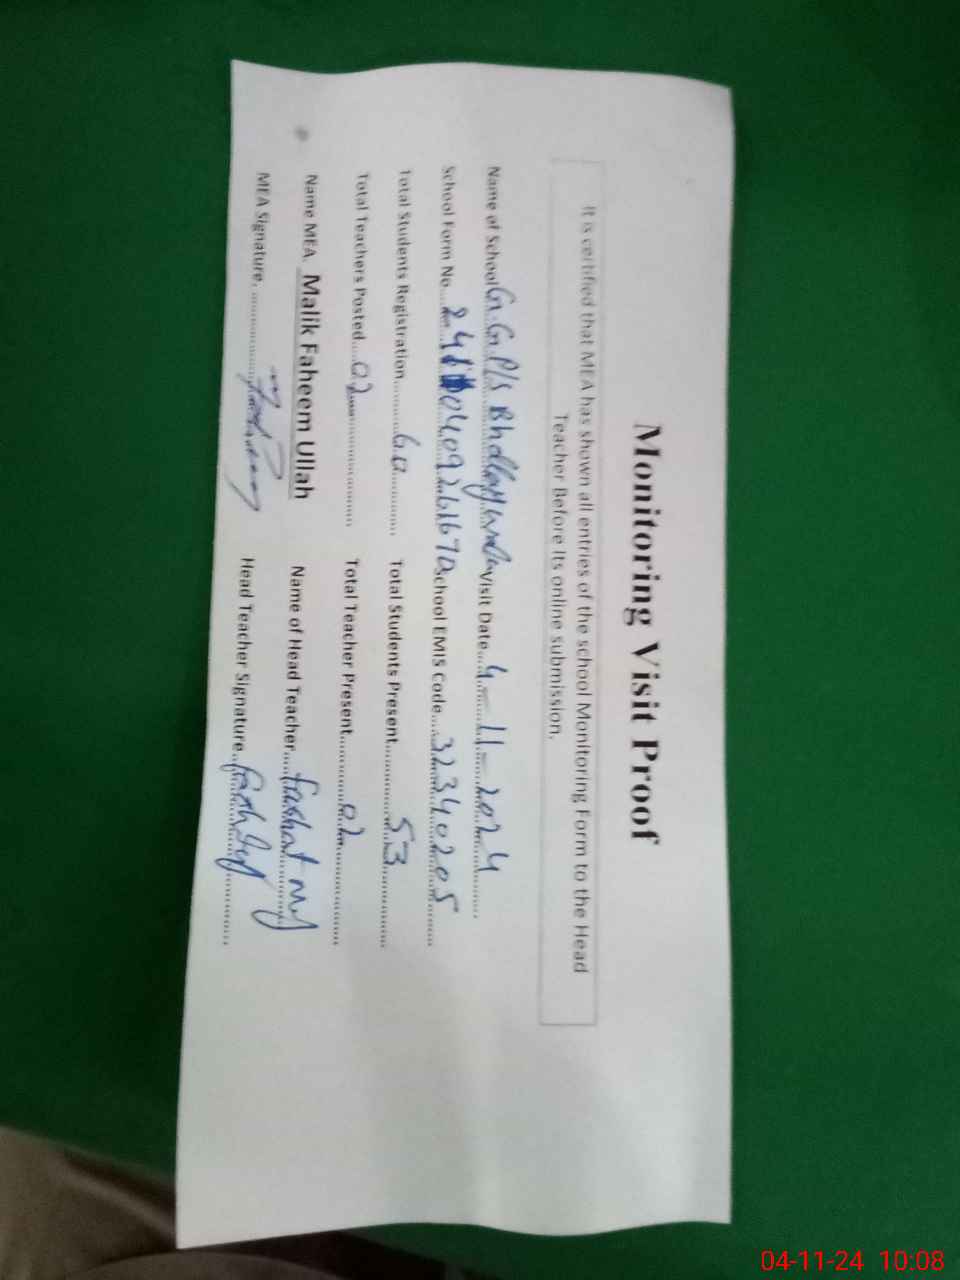 Monitoring Visit Proof
It is certified that MEA has shown all entries of the school Monitoring Form to the Head
Teacher Before its online submission.
Name of School G.G.P/S Visit Date 4-11-2024
School Form No. School EMIS Code 32340205
Total Students Registration 60 Total Students Present 53
Total Teachers Posted 02 Total Teacher Present 02
Name MEA. Malik Faheem Ullah Name of Head Teacher
MEA Signature. Head Teacher Signature
04-11-24 10:08